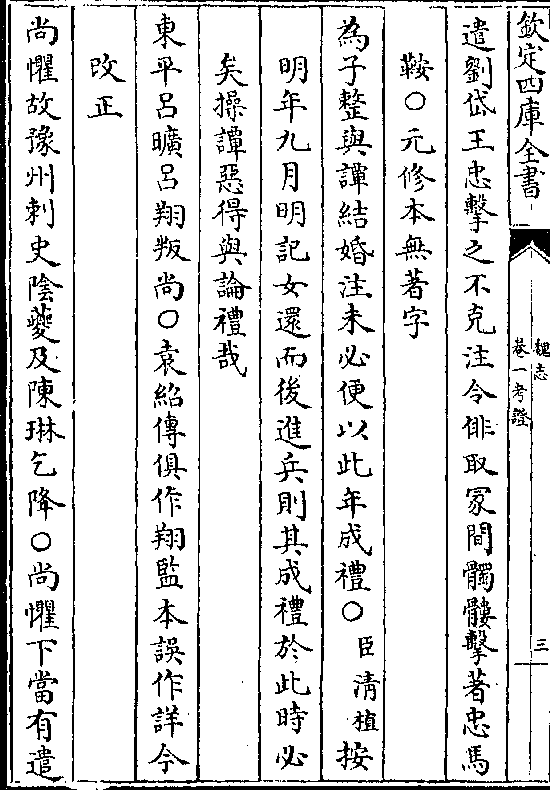 欽定四庫全書
魏志
卷一考證
三
遣劉岱王忠擊之不克注令俳取冢間髑髏擊著忠馬
鞍○元修本無著字
為子整與譚結婚注未必便以此年成禮○臣清植按
明年九月明記女還而後進兵則其成禮於此時必
矣操譚惡得與論禮哉
東平呂曠呂翔叛尚○袁紹傳俱作翔監本誤作詳今
改正
尚懼故豫州刺史陰夔及陳琳乞降○尚懼下當有遣